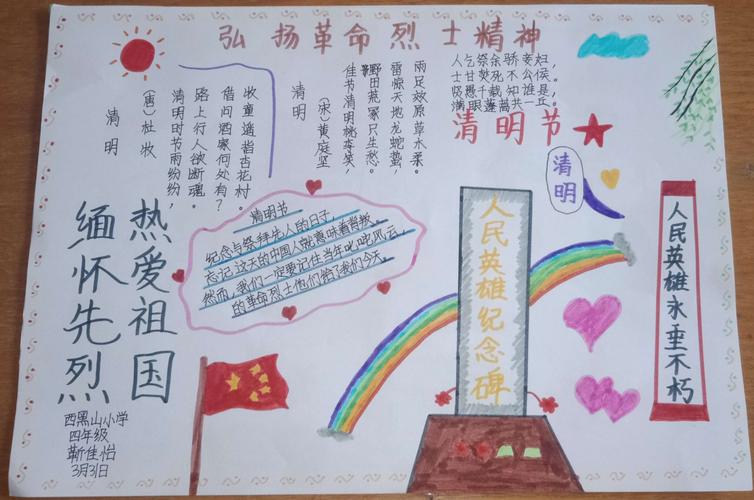 弘扬革命烈士精神
清明
(唐)杜牧
清明时节雨纷纷,
路上行人欲断魂。
借问酒家何处有?
牧童遥指杏花村。
清明
(宋)黄庭坚
佳节清明桃李笑,
野田荒冢只生愁。
雷惊天地龙蛇蛰,
雨足郊原草木柔。
人乞祭余骄妾妇,
士甘焚死不公侯。
贤愚千载知谁是,
满眼蓬蒿共一丘。
清明节
清明
清明节
纪念与祭拜先人的日子,
忘记这天的中国人就意味着背叛。
然而,我们一定要记住当年叱咤风云,
的革命烈士他们给了我们今天。
热爱祖国
缅怀先烈
人民英雄纪念碑
人民英雄永垂不朽
西黑山小学
四年级
靳佳怡
3月31日